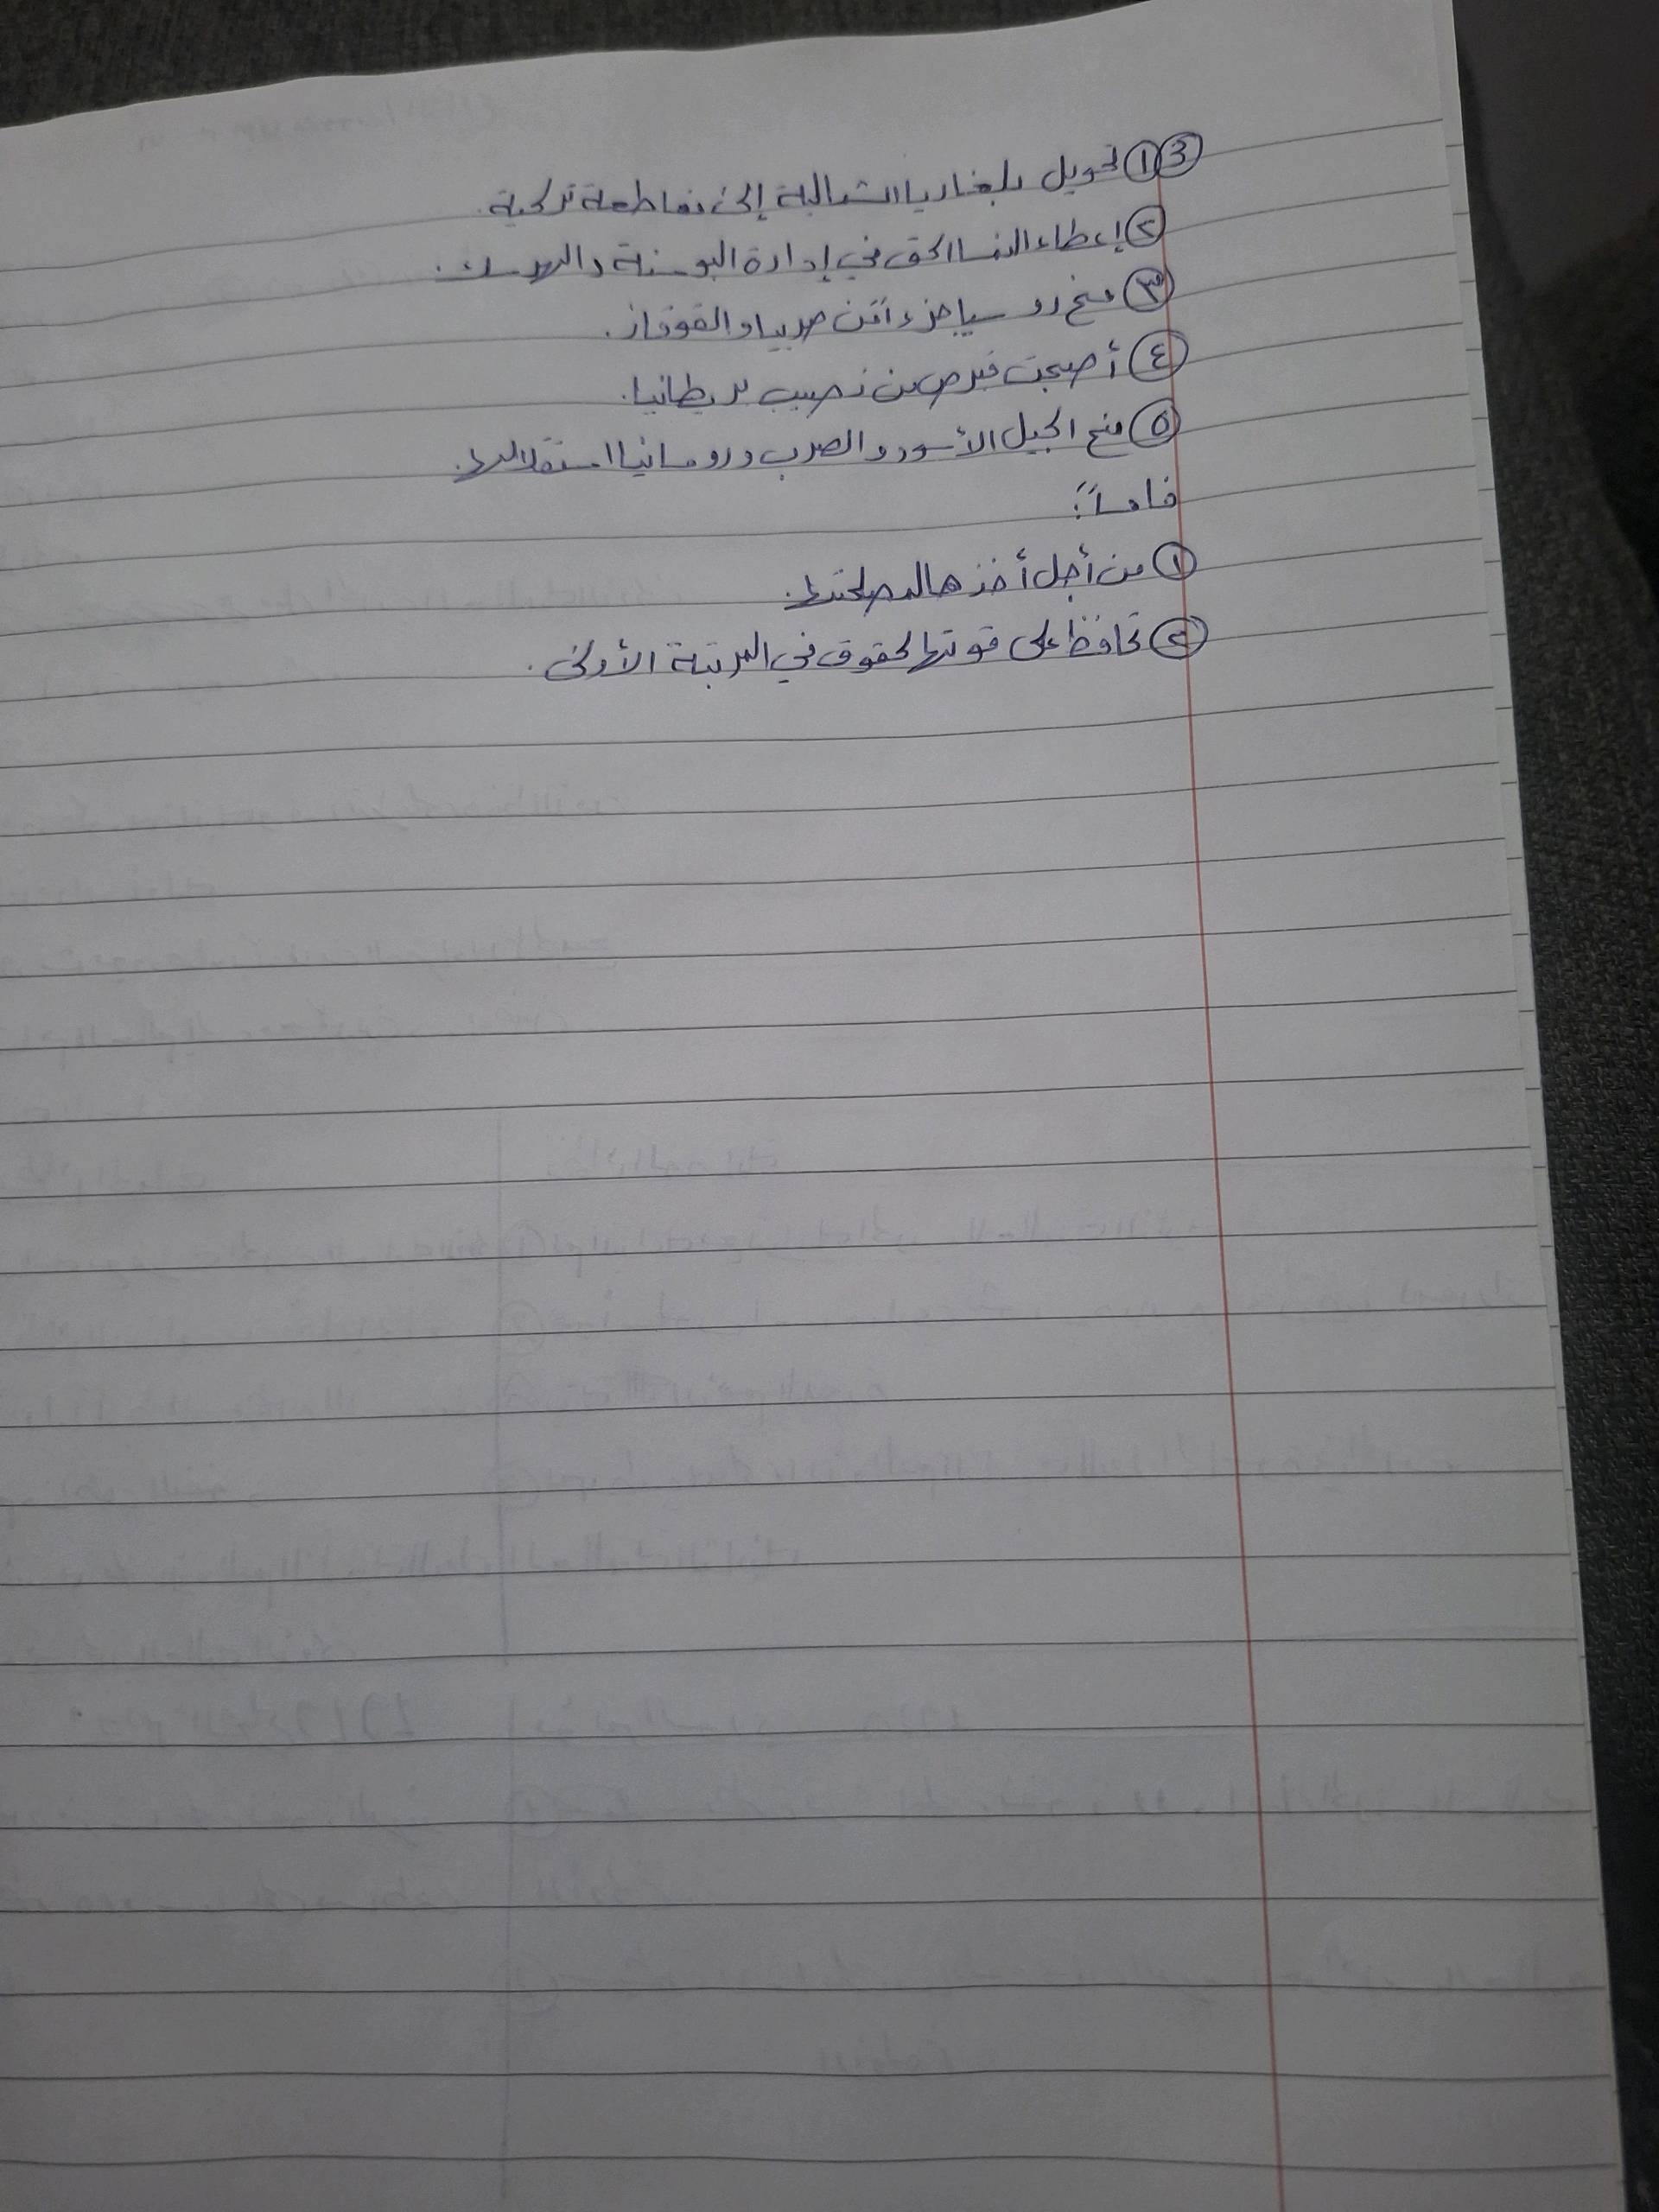 3 ١ تحويل بلغاريا الشمالية إلى مقاطعة تركية.
٢ إعطاء النمسا الحق في إدارة البوسنة والهرسك.
٣ منح روسيا جزءاً من صربيا والقوقاز.
٤ أصبحت قبرص من نصيب بريطانيا.
٥ منح الجبل الأسود والصرب ورومانيا استقلالها.
خامساً:
١ من أجل أخذها لمصلحتها.
٢ تحافظ على قوتها لحقوق في المرتبة الأولى.